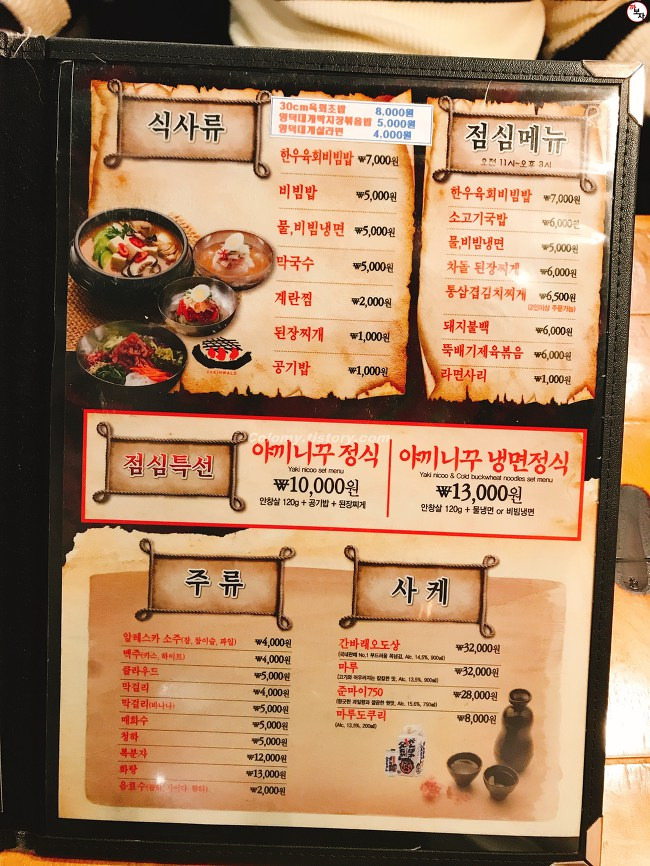 식사류
30cm육회초밥 8,000원
영덕대게딱지장볶음밥 5,000원
영덕대게살라면 4,000원
한우육회비빔밥 ₩7,000원
비빔밥 ₩5,000원
물,비빔냉면 ₩5,000원
막국수 ₩5,000원
계란찜 ₩2,000원
된장찌개 ₩1,000원
공기밥 ₩1,000원
점심메뉴
오전 11시~오후 3시
한우육회비빔밥 ₩7,000원
소고기국밥 ₩6,000원
물,비빔냉면 ₩5,000원
차돌 된장찌개 ₩6,000원
통삼겹김치찌개 ₩6,500원
(2인이상 주문가능)
돼지불백 ₩6,000원
뚝배기제육볶음 ₩6,000원
라면사리 ₩1,000원
Colomy.tistory.com
점심특선
야끼니꾸 정식
Yaki nicoo set menu
₩10,000원
안창살 120g + 공기밥 + 된장찌개
야끼니꾸 냉면정식
Yaki nicoo & Cold buckwheat noodles set menu
₩13,000원
안창살 120g + 물냉면 or 비빔냉면
주류
알레스카 소주(참, 참이슬, 과일) ₩4,000원
맥주(카스, 하이트) ₩4,000원
클라우드 ₩5,000원
막걸리 ₩4,000원
막걸리(바나나) ₩5,000원
매화수 ₩5,000원
청하 ₩5,000원
복분자 ₩12,000원
화랑 ₩13,000원
음료수 ₩2,000원
사케
간바레오도상 ₩32,000원
(국내판매 No.1 부드러움 목넘김, Alc. 14.5%, 900㎖)
마루 ₩32,000원
(고기와 어우러지는 깔끔한 맛, Alc. 13.5%, 900㎖)
준마이750 ₩28,000원
(향긋한 과일향과 깔끔한 뒷맛, Alc. 15.6%, 750㎖)
마루도쿠리 ₩8,000원
(Alc. 13.5%, 200㎖)